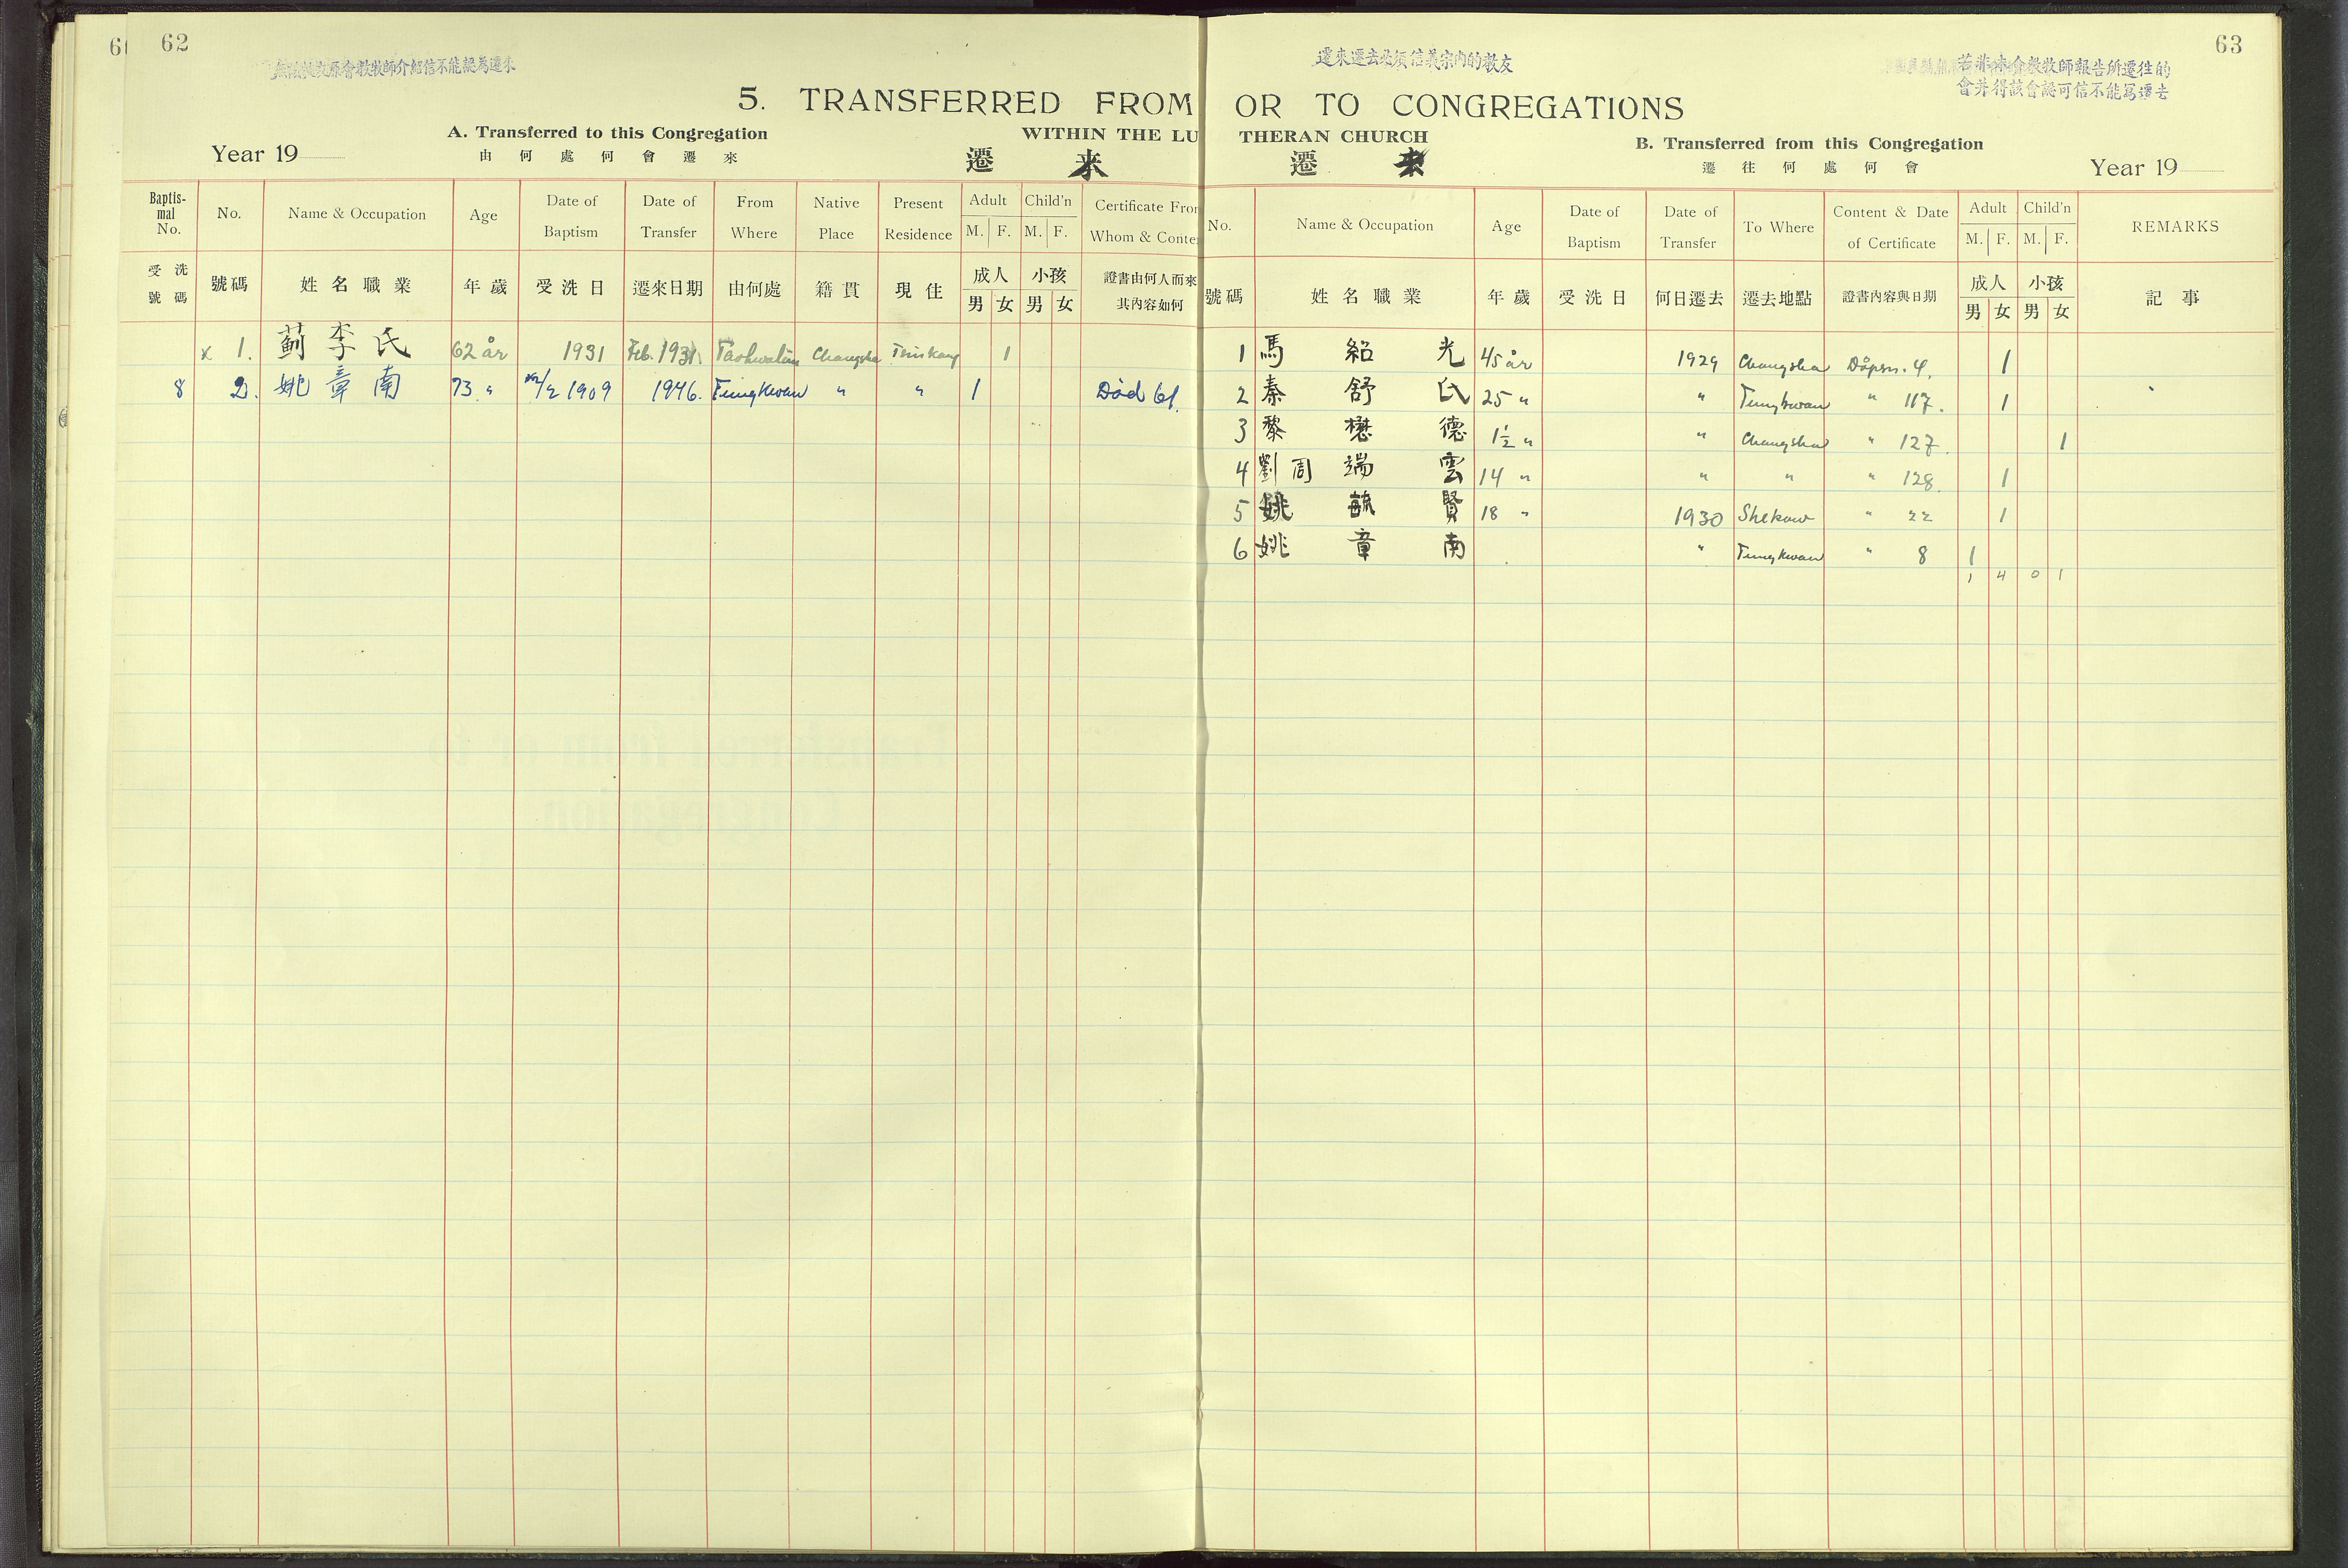 62
遷來
5. TRANSFERRED FROM
A. Transferred to this Congregation
WITHIN THE LU
Year 19
由何處何會遷來
遷 来
Baptismal No. No. Name & Occupation Age Date of Baptism Date of Transfer From Where Native Place Present Residence Adult M. F. Child'n M. F. Certificate From Whom & Conte
受洗號碼 號碼 姓名職業 年歲 受洗日 遷來日期 由何處 籍貫 現住 成人 男 女 小孩 男 女 證書由何人而來其內容如何
x 1. 李氏 62 år 1931 Feb. 1931 Taohwalun Changsha 1
8 2. 姚章南 73 " 1909 1946. Tungkwan " " 1 Död 61.
63
遷來遷去必須信義宗内的教友
若非本會教牧師報告所遷往的
會并得該會認可信不能爲遷去
OR TO CONGREGATIONS
THERAN CHURCH
B. Transferred from this Congregation
遷
遷往何處何會
Year 19
No. Name & Occupation Age Date of Baptism Date of Transfer To Where Content & Date of Certificate Adult M. F. Child'n M. F. REMARKS
號碼 姓名職業 年歲 受洗日 何日遷去 遷去地點 證書內容與日期 成人 男 女 小孩 男 女 記事
1 馬紹光 45 år 1929 Changsha Döpsn. 4. 1
2 秦舒氏 25 " " Tungkwan " 117. 1
3 黎懋德 1½ " " Changsha " 127. 1
4 劉周端雲 14 " " " " 128. 1
5 姚毓賢 18 " 1930 Shekow " 22 1
6 姚章南 " Tungkwan " 8 1
1 4 0 1